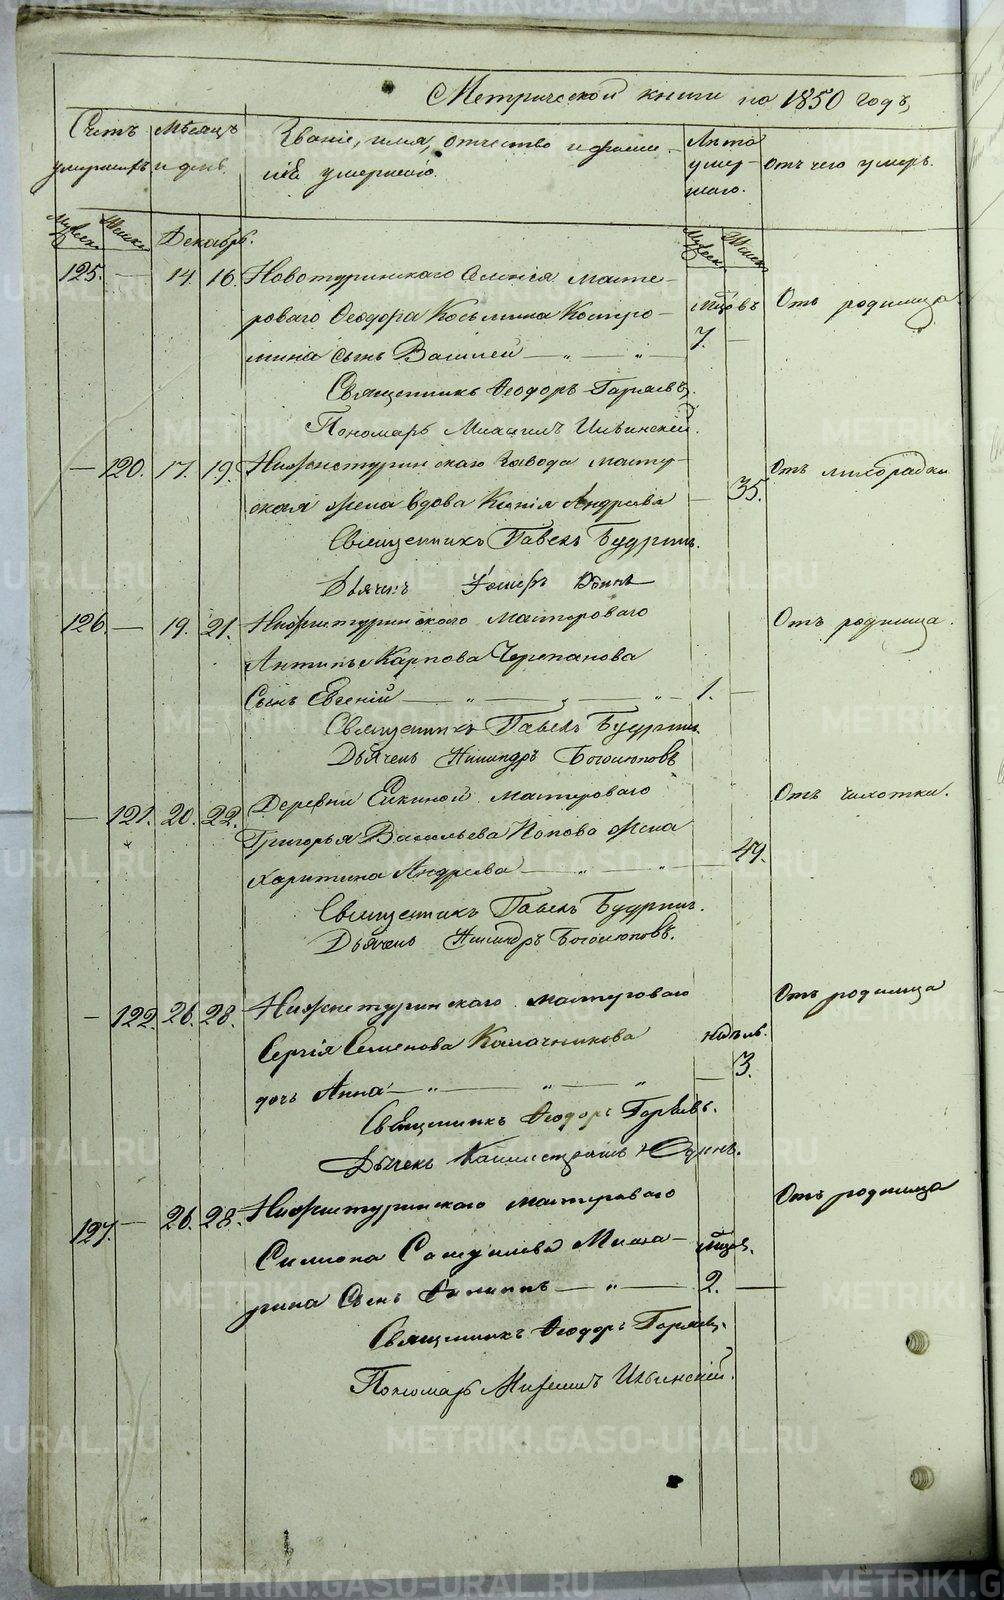 Метрической книги на 1850 годъ,
Счетъ умершихъ
Мѣсяцъ и день.
Званіе, имя, отчество и фамилія умершаго.
Лѣта умершаго.
Отъ чего умеръ.
Мужеск. Женск. Декабрь. Мужеск. Женск.
125. — 14. 16. Новотуринскаго Селенія масте-
роваго Ѳеодора Косьмина Мѣсяцовъ Отъ родимца
сынъ Василей — „ — „ — 7. —
Священникъ Ѳеодоръ Горяевъ,
Пономарь Михаилъ Ильинскій.
— 120. 17. 19. Нижнетуринскаго Завода масте-
жена вдова Ксенія Андреева — 35. Отъ лихорадки
Священникъ Павелъ Будринъ.
Дьячекъ
126. — 19. 21. Нижнетуринскаго мастероваго Отъ родимца.
Антипы Карпова Черепанова
Сынъ Евгеній — „ — „ — „ — 1. —
Священникъ Павелъ Будринъ.
Дьячекъ Никандръ Боголюповъ
— 121. 20. 22. Деревни Елкиной мастероваго Отъ чахотки.
Григорья Васильева Попова жена
Харитина Андреева — „ — „ — 47.
Священникъ Павелъ Будринъ.
Дьячекъ Никандръ Боголюповъ.
— 122. 26. 28. Нижнетуринскаго мастероваго Отъ родимца
Сергія Семенова Калачникова недѣль.
дочь Анна — „ — „ — „ — 3.
Священникъ Ѳеодоръ Горяевъ.
Дьячекъ Каллистратъ Юдинъ.
127. — 26. 28. Нижнетуринскаго мастероваго Отъ родимца
Симиона мѣсяц.
Сынъ Филиппъ — „ — 2. —
Священникъ Ѳеодоръ Горяевъ,
Пономарь Михаилъ Ильинскій.
METRIKI.GASO-URAL.RU